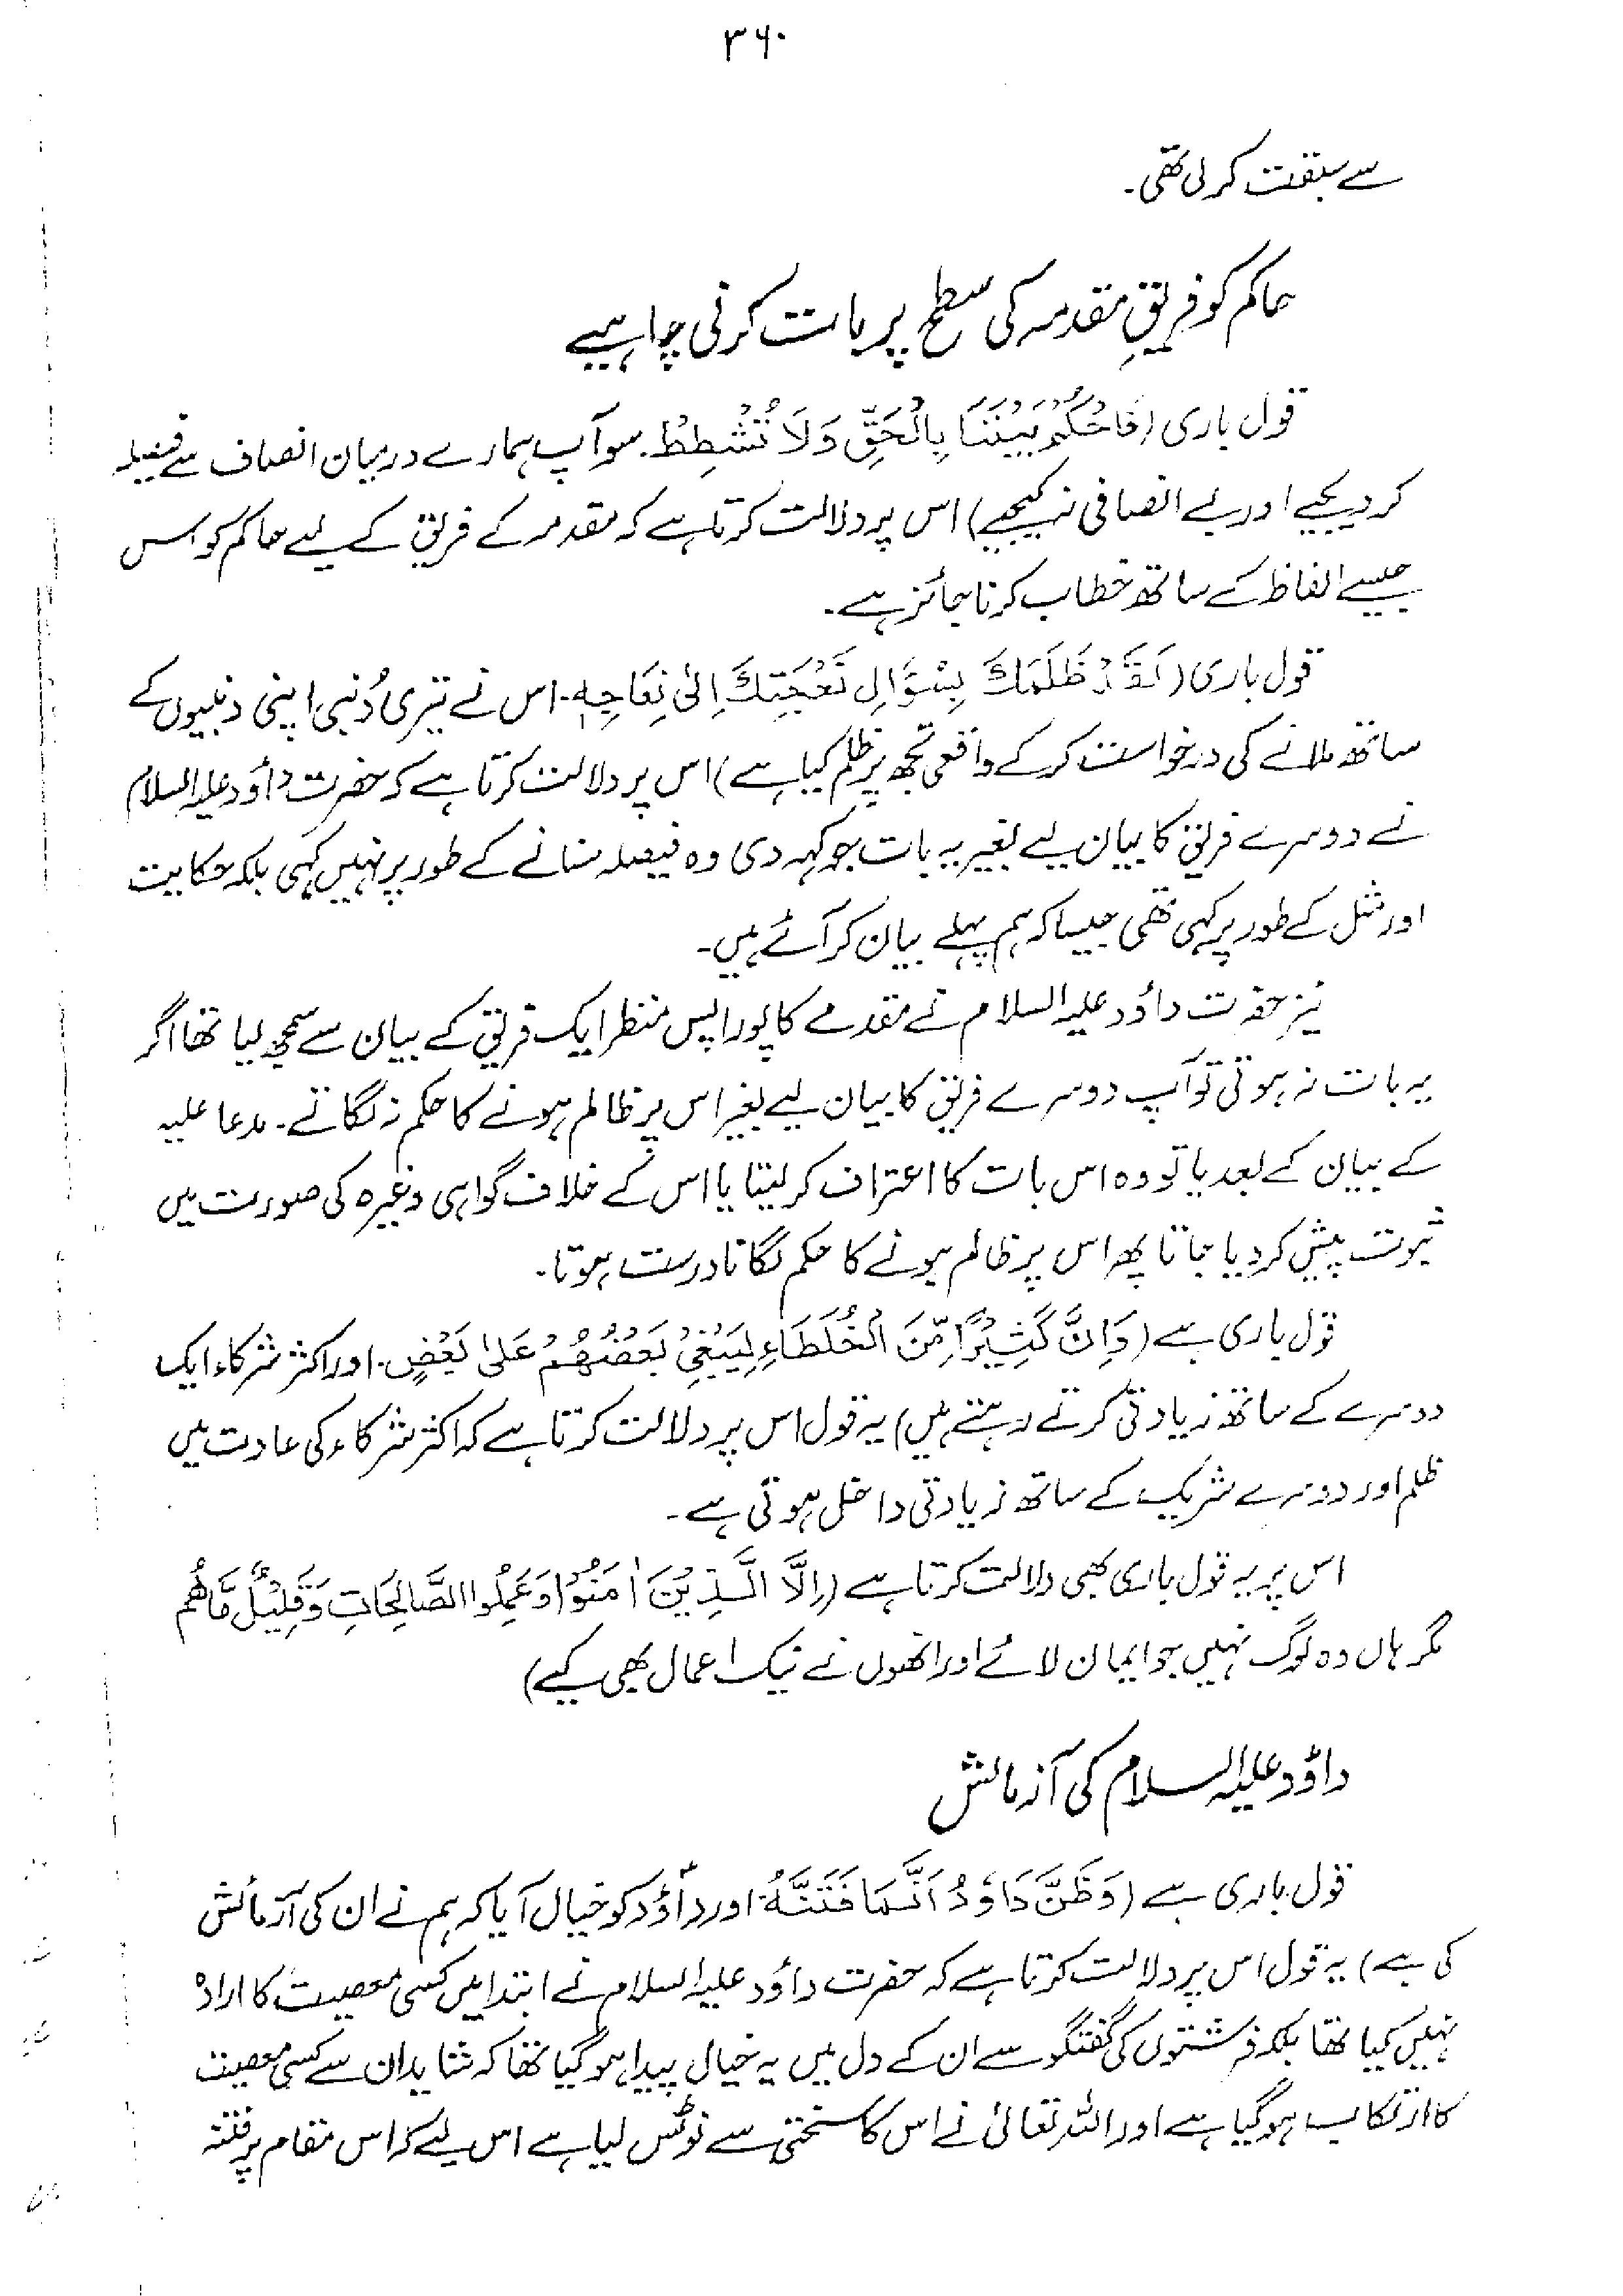 ۳۶۰
سے سبقت کر لی تھی۔
حاکم کو فریقِ مقدمہ کی سطح پر بات کرنی چاہیے
قول باری (فَاحْكُمْ بَيْنَنَا بِالْحَقِّ وَلَا تُشْطِطْ. سو آپ ہمارے درمیان انصاف سے فیصلہ
کر دیجیے اور بے انصافی نہ کیجیے) اس پر دلالت کرتا ہے کہ مقدمہ کے فریق کے لیے حاکم کو اس
جیسے الفاظ کے ساتھ خطاب کرنا جائز ہے۔
قول باری (لَقَدْ ظَلَمَكَ بِسُؤَالِ نَعْجَتِكَ اِلٰى نِعَاجِهٖ۔ اس نے تیری دُنبی اپنی دنبیوں کے
ساتھ ملانے کی درخواست کر کے واقعی تجھ پر ظلم کیا ہے) اس پر دلالت کرتا ہے کہ حضرت داؤد علیہ السلام
نے دوسرے فریق کا بیان لیے بغیر یہ بات جو کہہ دی وہ فیصلہ سنانے کے طور پر نہیں کہی بلکہ حکایت
اور مثل کے طور پر کہی تھی جیسا کہ ہم پہلے بیان کر آئے ہیں۔
نیز حضرت داؤد علیہ السلام نے مقدمے کا پورا پس منظر ایک فریق کے بیان سے سمجھ لیا تھا اگر
یہ بات نہ ہوتی تو آپ دوسرے فریق کا بیان لیے بغیر اس پر ظالم ہونے کا حکم نہ لگاتے۔ مدعا علیہ
کے بیان کے بعد یا تو وہ اس بات کا اعتراف کر لیتا یا اس کے خلاف گواہی وغیرہ کی صورت میں
ثبوت پیش کر دیا جاتا پھر اس پر ظالم ہونے کا حکم لگانا درست ہوتا۔
قول باری ہے (وَاِنَّ كَثِيْرًا مِّنَ الْخُلَطَاءِ لَيَبْغِيْ بَعْضُهُمْ عَلٰى بَعْضٍ. اور اکثر شرکاء ایک
دوسرے کے ساتھ زیادتی کرتے رہتے ہیں) یہ قول اس پر دلالت کرتا ہے کہ اکثر شرکاء کی عادت میں
ظلم اور دوسرے شریک کے ساتھ زیادتی داخل ہوتی ہے۔
اس پر یہ قول باری بھی دلالت کرتا ہے (اِلَّا الَّذِيْنَ اٰمَنُوْا وَعَمِلُوا الصَّالِحَاتِ وَقَلِيْلٌ مَّا هُمْ
مگر ہاں وہ لوگ نہیں جو ایمان لائے اور انھوں نے نیک اعمال بھی کیے)
داؤد علیہ السلام کی آزمائش
قول باری ہے (وَظَنَّ دَاوٗدُ اَنَّمَا فَتَنّٰهُ۔ اور داؤد کو خیال آیا کہ ہم نے ان کی آزمائش
کی ہے) یہ قول اس پر دلالت کرتا ہے کہ حضرت داؤد علیہ السلام نے ابتدا میں کسی معصیت کا ارادہ
نہیں کیا تھا بلکہ فرشتوں کی گفتگو سے ان کے دل میں یہ خیال پیدا ہو گیا تھا کہ شاید ان سے کسی معصیت
کا ارتکاب ہو گیا ہے اور اللہ تعالیٰ نے اس کا سختی سے نوٹس لیا ہے اس لیے کہ اس مقام پر فتنہ